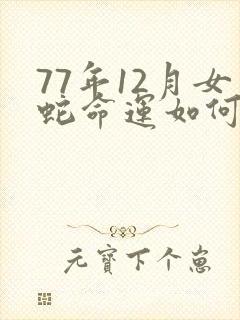 77年12月女
蛇命运如何
元寶下个崽